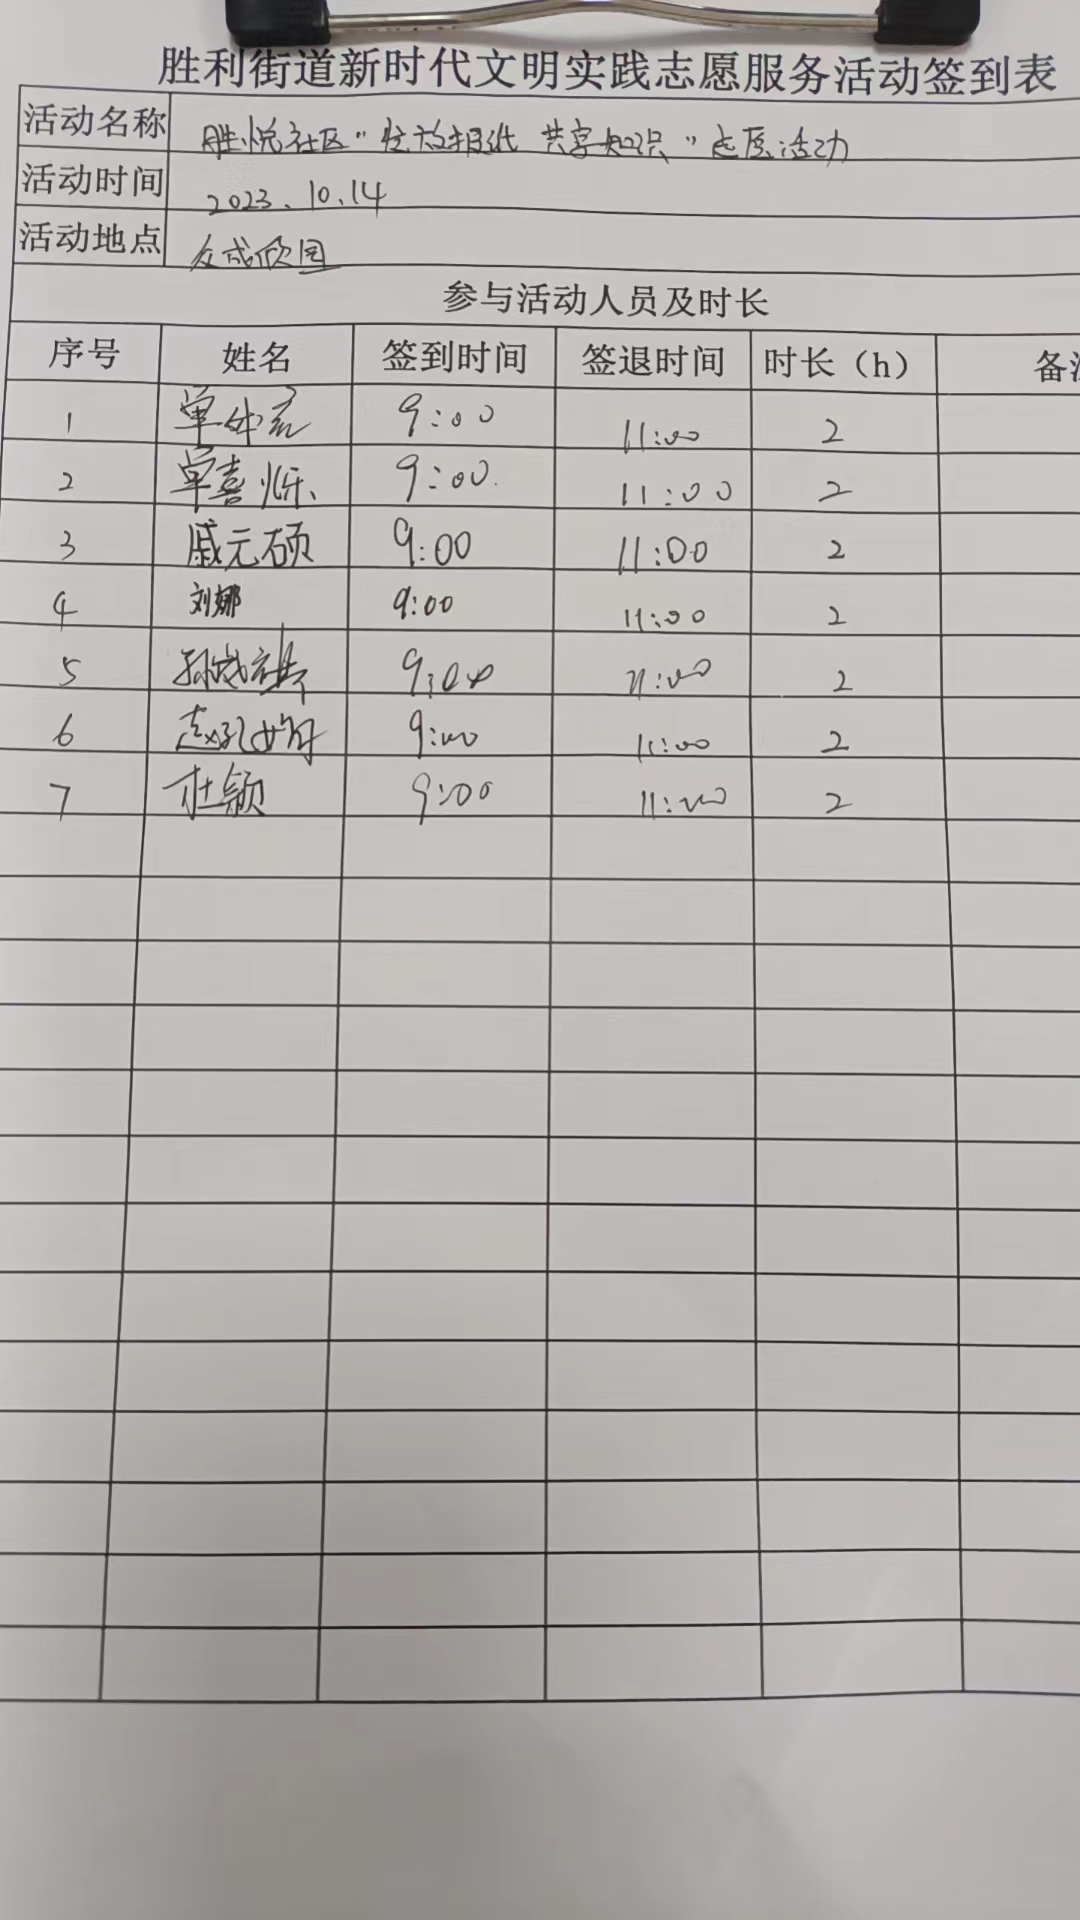 胜利街道新时代文明实践志愿服务活动签到表
活动名称 胜悦社区"发放报纸 共享知识"志愿活动
活动时间 2023.10.14
活动地点 众成欣园
参与活动人员及时长
序号 姓名 签到时间 签退时间 时长（h） 备注
1 单 9:00 11:00 2
2 单喜烁 9:00 11:00 2
3 戚元硕 9:00 11:00 2
4 刘娜 9:00 11:00 2
5 孙 9:00 11:00 2
6 赵 9:00 11:00 2
7 杜颖 9:00 11:00 2